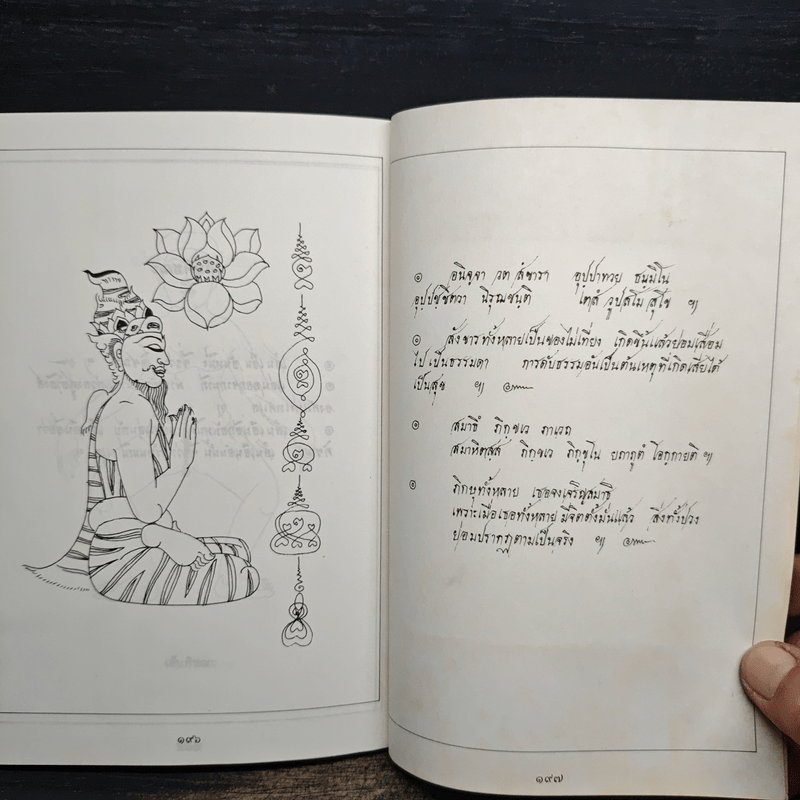 ๑๙๖
๏ อนิจฺจา วต สํขารา อุปฺปาทวย ธมฺมิโน
อุปฺปชฺชิตวา นิรุฌชนฺติ เตสํ วูปสโม สุโข ฯ
๏ สังขารทั้งหลายเป็นของไม่เที่ยง เกิดขึ้นแล้วย่อมเสื่อม
ไป เป็นธรรมดา การดับธรรมอันเป็นต้นเหตุที่เกิดเสียได้
เป็นสุข ฯ
๏ สมาธึ ภิกฺขเว ภาเวถ
สมาหิตสฺส ภิกฺขเว ภิกฺขุโน ยถาภูตํ โอกฺกายติ ฯ
๏ ภิกษุทั้งหลาย เธอจงเจริญสมาธิ
เพราะเมื่อเธอทั้งหลาย มีจิตตั้งมั่นแล้ว สิ่งทั้งปวง
ย่อมปรากฏตามเป็นจริง ฯ
๑๙๗